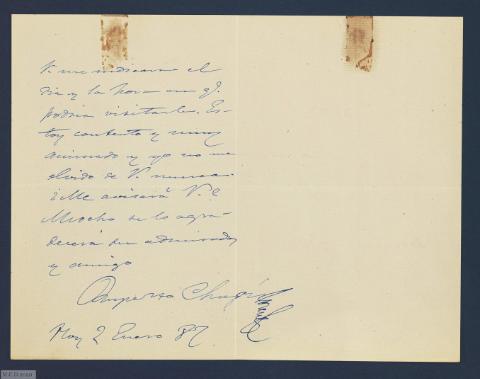 V. me indicara el
dia y la hora en q.
podria visitarle. Es-
toy contento y muy
animado y yo no me
olvido de V. nunca.
¿Me avisará V.?
Mucho se lo agra-
decerá su admirador
y amigo
Ruperto Chapí
Hoy 2 Enero 87.